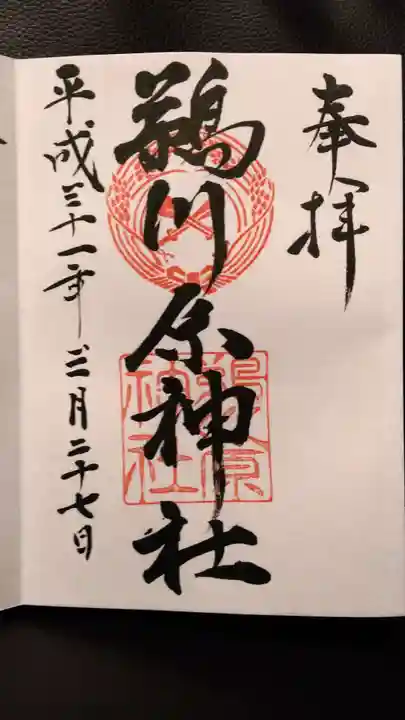 奉拝
鵜川原神社
平成三十一年三月二十七日